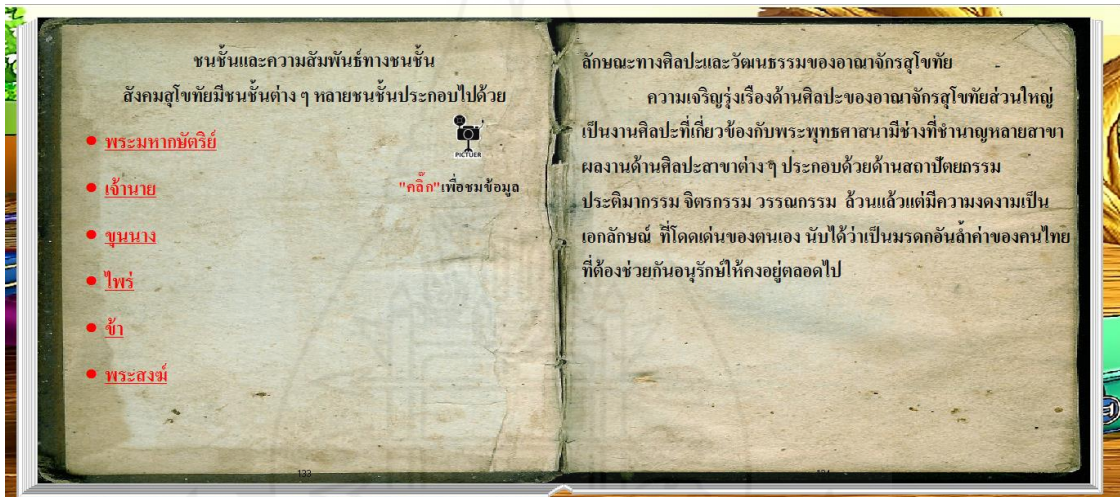 ชนชั้นและความสัมพันธ์ทางชนชั้น
สังคมสุโขทัยมีชนชั้นต่าง ๆ หลายชนชั้นประกอบไปด้วย
พระมหากษัตริย์
เจ้านาย
ขุนนาง
ไพร่
ข้า
พระสงฆ์
PICTUER
"คลิ๊ก"เพื่อชมข้อมูล
133
ลักษณะทางศิลปะและวัฒนธรรมของอาณาจักรสุโขทัย
ความเจริญรุ่งเรืองด้านศิลปะของอาณาจักรสุโขทัยส่วนใหญ่
เป็นงานศิลปะที่เกี่ยวข้องกับพระพุทธศาสนามีช่างที่ชำนาญหลายสาขา
ผลงานด้านศิลปะสาขาต่าง ๆ ประกอบด้วยด้านสถาปัตยกรรม
ประติมากรรม จิตรกรรม วรรณกรรม ล้วนแล้วแต่มีความงดงามเป็น
เอกลักษณ์ ที่โดดเด่นของตนเอง นับได้ว่าเป็นมรดกอันล้ำค่าของคนไทย
ที่ต้องช่วยกันอนุรักษ์ให้คงอยู่ตลอดไป